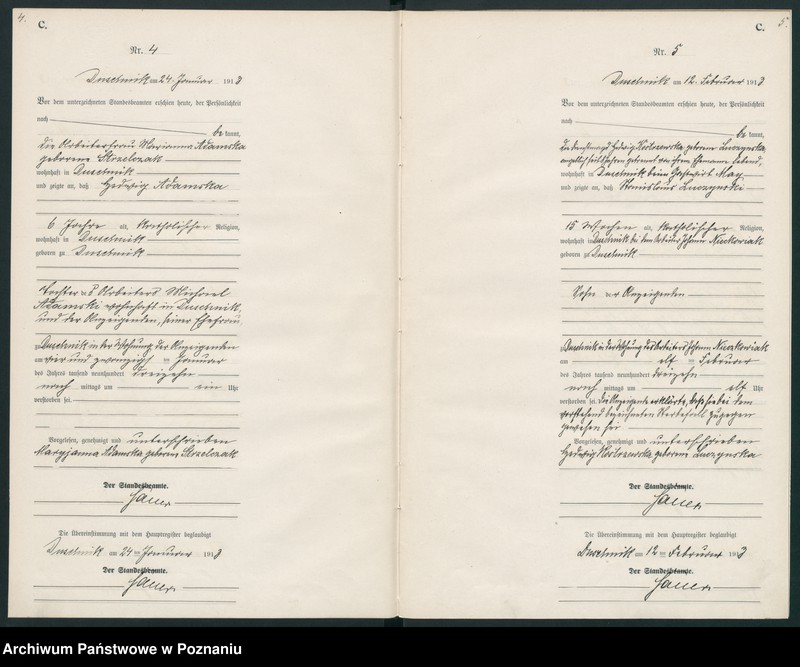 4.
C.
Nr. 4
Duschnik am 24. Januar 1913
Vor dem unterzeichneten Standesbeamten erschien heute, der Persönlichkeit
nach
be kannt,
die Arbeiterfrau Marianna Adamska
geborene Strzelczak
wohnhaft in Duschnik
und zeigte an, daß Hedwig Adamska
6 Jahre alt, katholischer Religion,
wohnhaft in Duschnik
geboren zu Duschnik
Tochter des Arbeiters Michael
Adamski wohnhaft in Duschnik,
und der Anzeigenden, seiner Ehefrau,
zu Duschnik in der Wohnung der Anzeigenden
am vier und zwanzigsten Januar
des Jahres tausend neunhundert dreizehn
nach mittags um ein Uhr
verstorben sei.
Vorgelesen, genehmigt und unterschrieben
Maryjanna Adamska geborene Strzelczak
Der Standesbeamte.
Hauer
Die Übereinstimmung mit dem Hauptregister beglaubigt
Duschnik am 24 ten Januar 1913
Der Standesbeamte.
Hauer
5.
C.
Nr. 5
Duschnik am 12. Februar 1913
Vor dem unterzeichneten Standesbeamten erschien heute, der Persönlichkeit
nach
be kannt,
die Dienstmagd Hedwig Kostrzewska geborene Luczynska
angeblich seit Jahren getrennt von ihrem Ehemanne lebend,
wohnhaft in Duschnik beim Gastwirt May
und zeigte an, daß Stanislaus Luczynski
15 Wochen alt, katholischer Religion,
wohnhaft in Duschnik bei dem Arbeiter Johann
geboren zu Duschnik
Sohn der Anzeigenden
zu Duschnik in der Wohnung des Arbeiters Johann
am elf ten Februar
des Jahres tausend neunhundert dreizehn
nach mittags um elf Uhr
verstorben sei. Die Anzeigende erklärte, daß sie bei dem
vorstehend bezeichneten Sterbefall zugegen
gewesen sei
Vorgelesen, genehmigt und unterschrieben
Hedwig Kostrzewska geborene Luczynska
Der Standesbeamte.
Hauer
Die Übereinstimmung mit dem Hauptregister beglaubigt
Duschnik am 12 ten Februar 1913
Der Standesbeamte.
Hauer
Archiwum Państwowe w Poznaniu